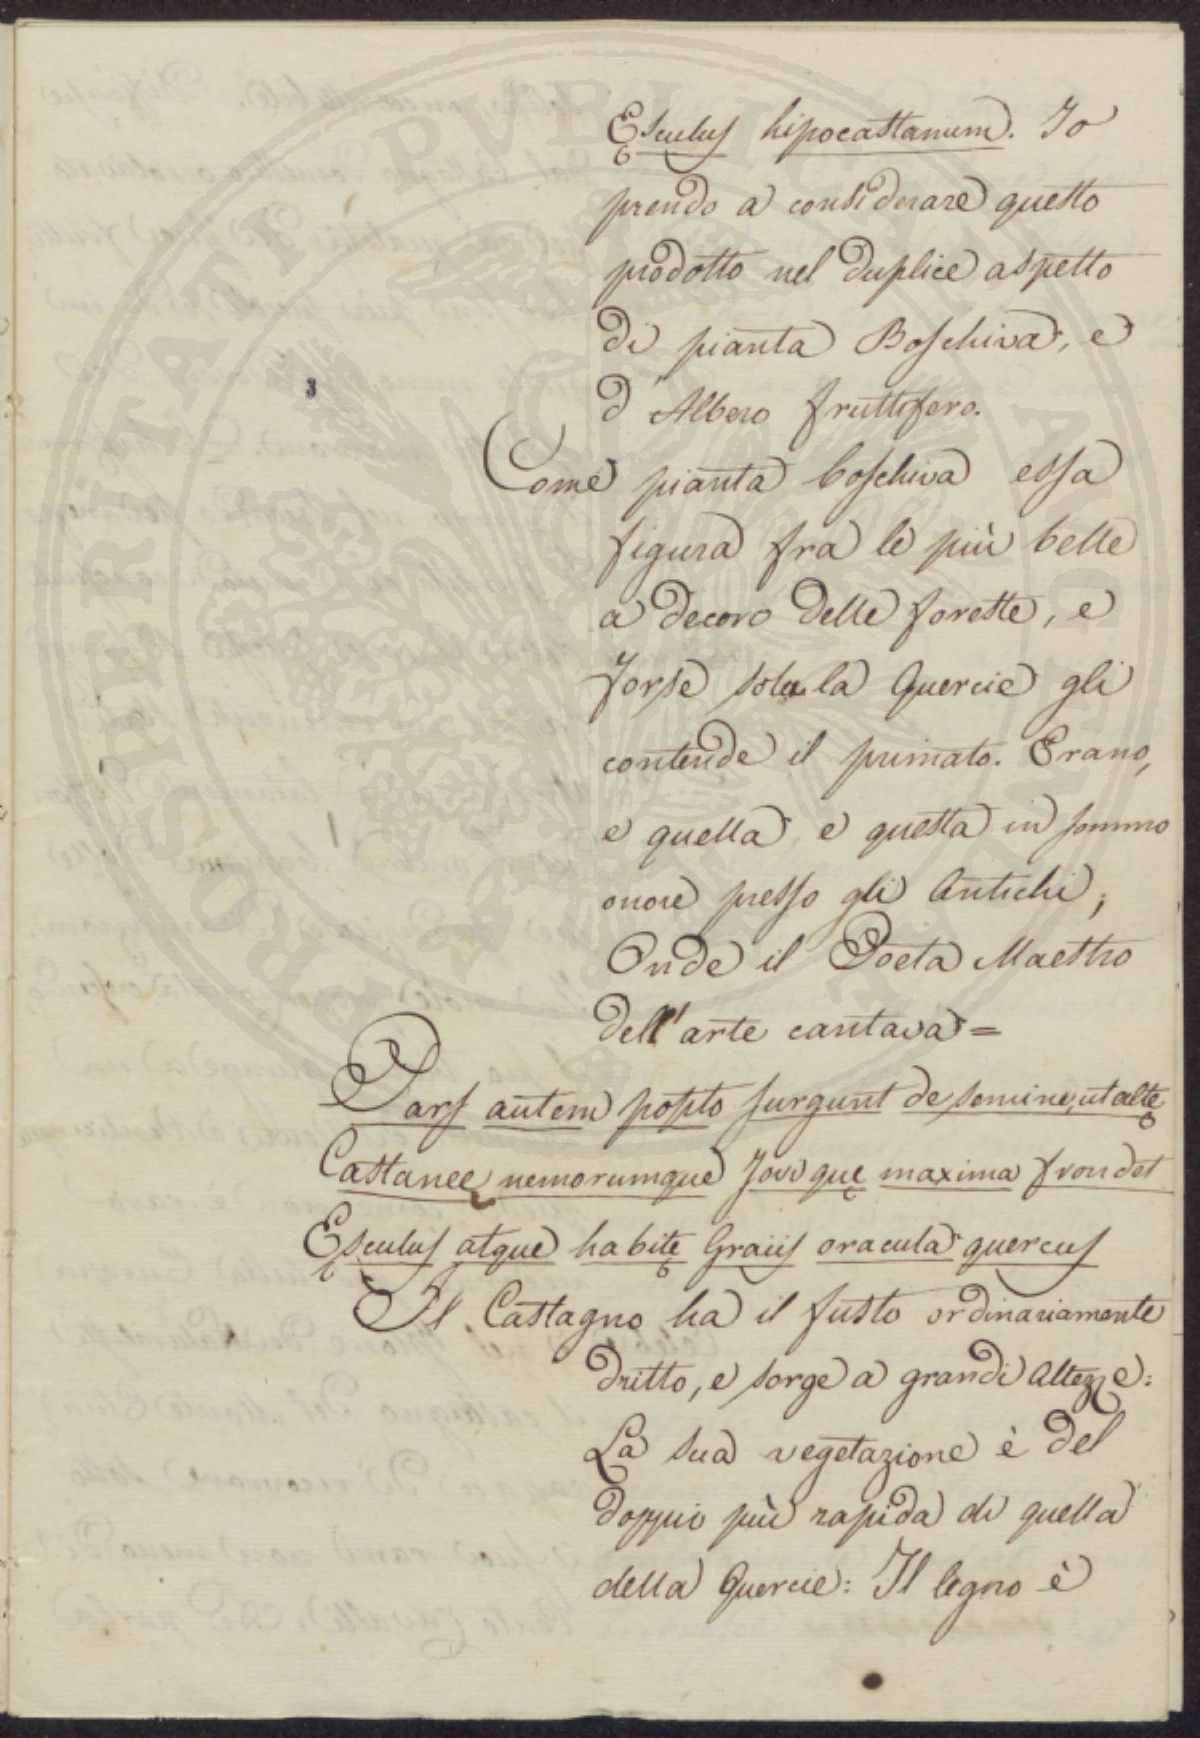 Ęsculus hipocastanum. Io
prendo a considerare questo
prodotto nel duplice aspetto
di pianta Boschiva, e
3
d'Albero fruttifero.
Come pianta boschiva essa
figura fra le più belle
a decoro delle foreste, e
forse sola la Quercie gli
contende il primato. Erano,
e quella, e questa in sommo
onore presso gli Antichi;
Onde il Poeta Maestro
dell'arte cantava =
Pars autem posito surgunt de semine, ut altę
Castaneę nemorumque Jovi quę maxima frondet
Ęsculus atque habitę Graiis oracula quercus
Il Castagno ha il fusto ordinariamente
dritto, e sorge a grandi altezze:
La sua vegetazione è del
doppio più rapida di quella
della Quercie: Il legno è
PROSPERITATI PUBLICAE AUGENDAE